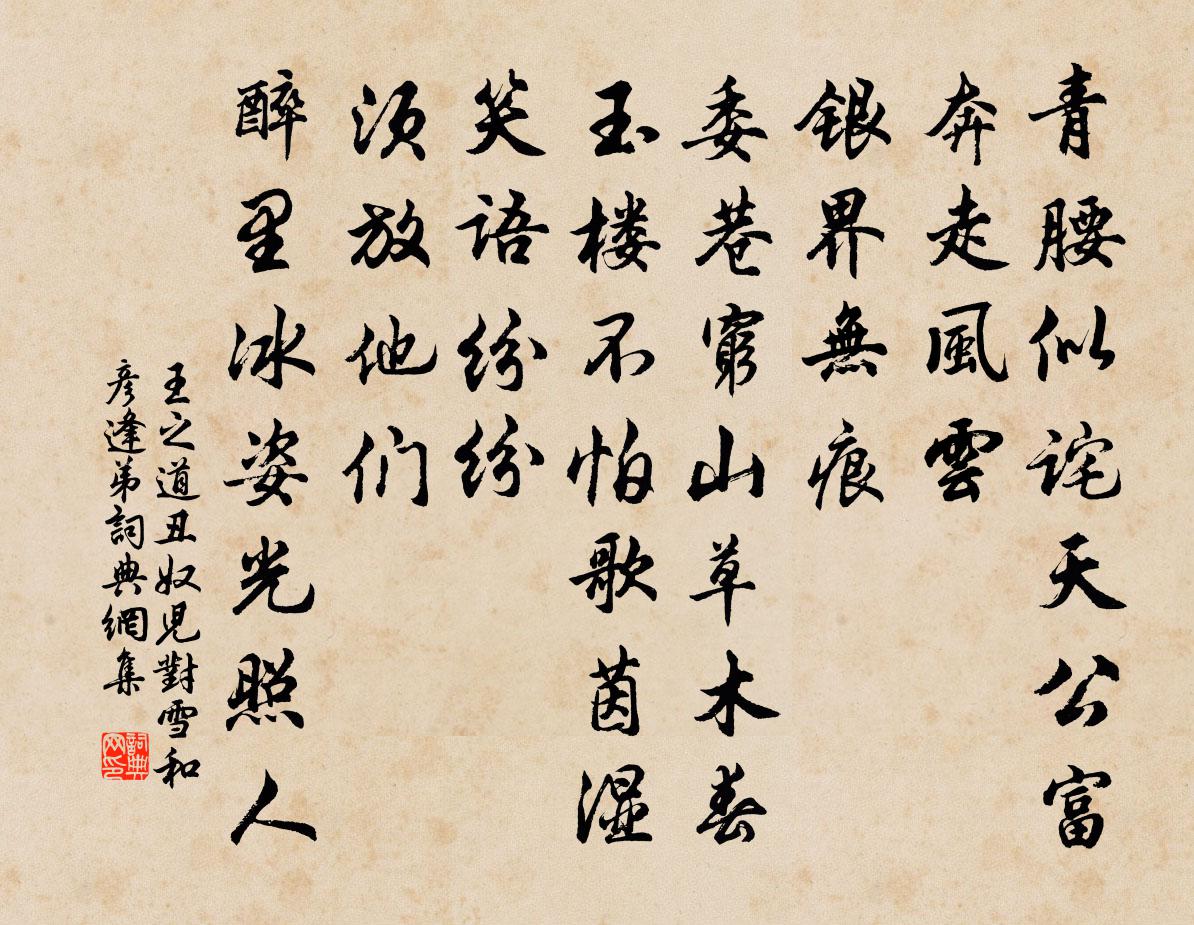 青腰似詫天公富
奔走風雲
銀界無痕
委巷窮山草木春
玉楼不怕歌茵湿
笑语纷纷
须放他们
醉里冰姿光照人
王之道丑奴児對雪和
彦逢弟詞典網集
詞典
网印